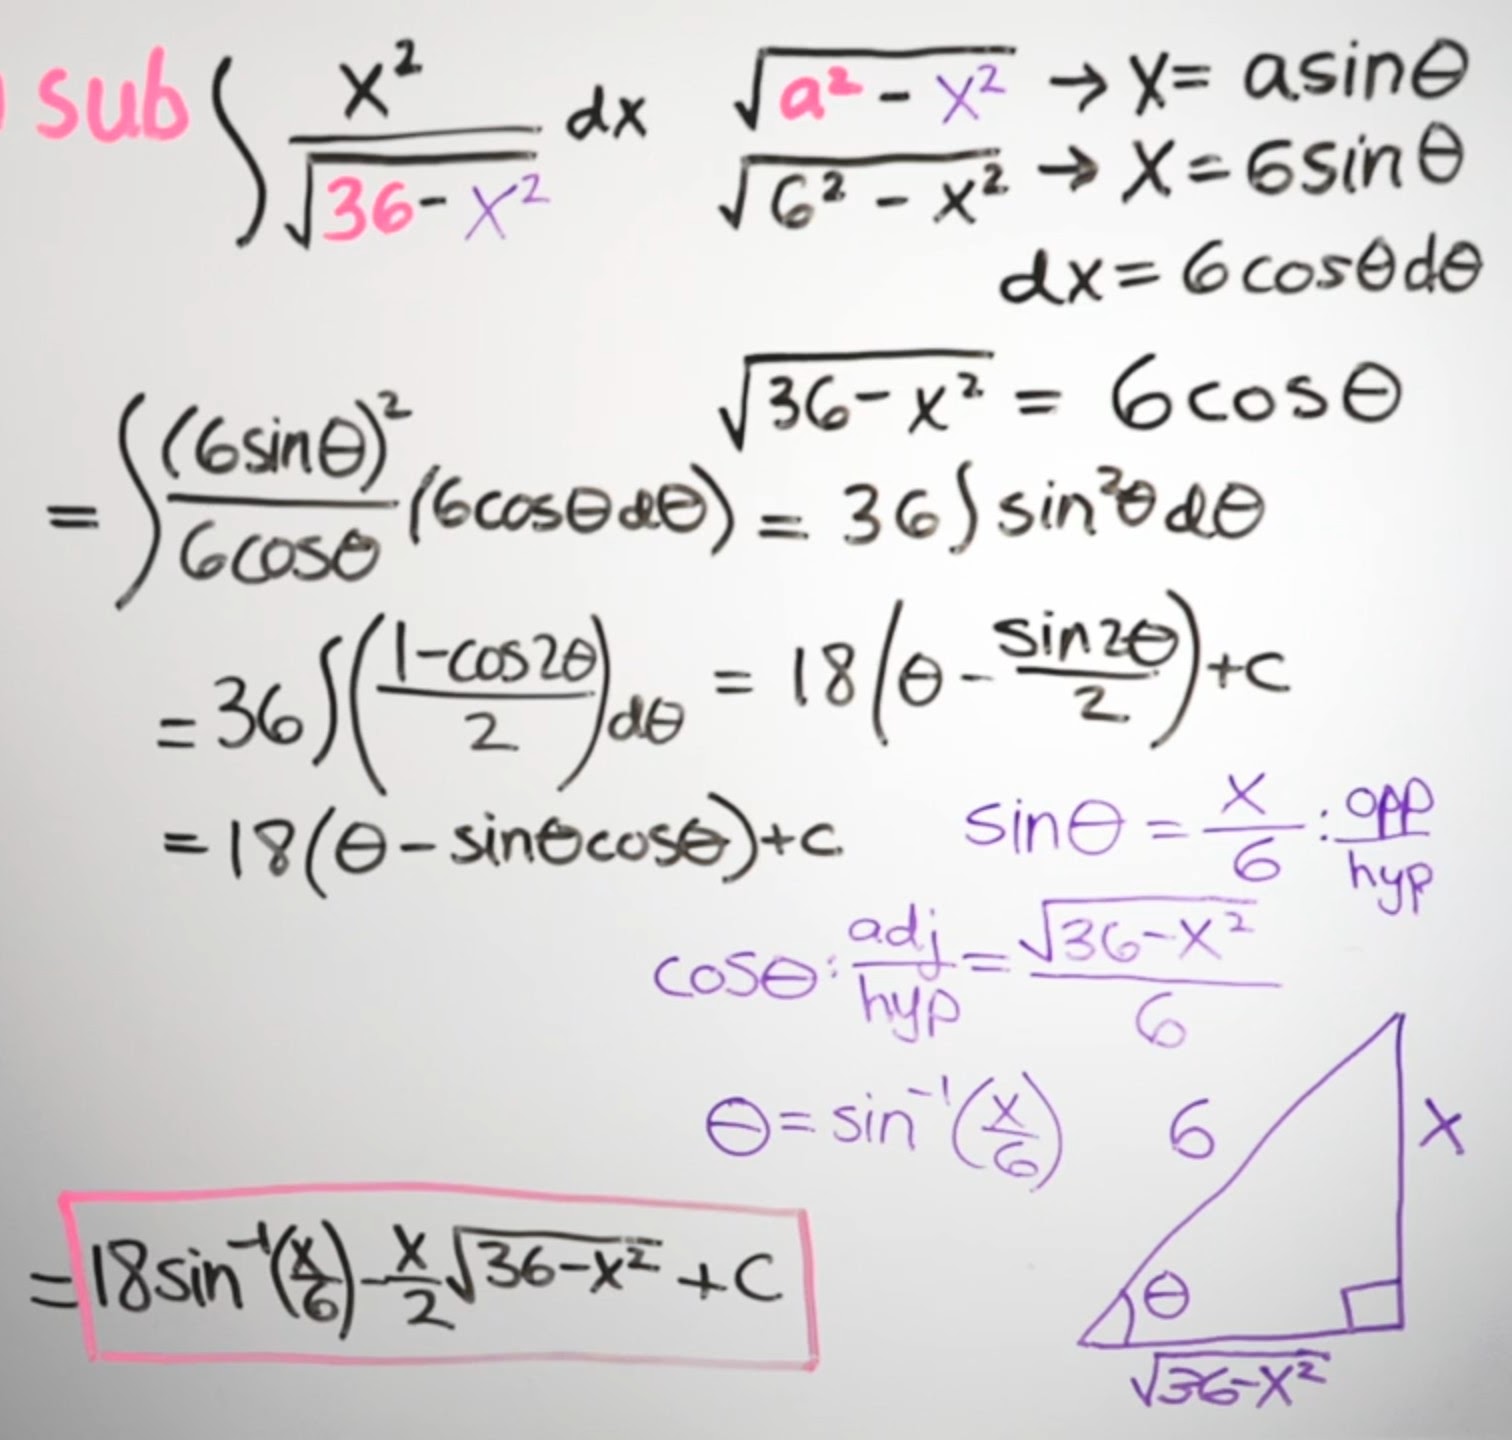 sub ∫ x²/√(36-x²) dx √(a²-x²) → x= asinθ
√(6²-x²) → x=6sinθ
dx=6cosθdθ
√(36-x²) = 6cosθ
=∫(6sinθ)²/6cosθ (6cosθdθ) = 36∫sin²θdθ
=36∫((1-cos2θ)/2)dθ = 18(θ-sin2θ/2)+c
=18(θ-sinθcosθ)+c
sinθ=x/6:opp/hyp
cosθ:adj/hyp=√(36-x²)/6
θ=sin⁻¹(x/6)
6
x
θ
√(36-x²)
=18sin⁻¹(x/6)-x/2√(36-x²)+C